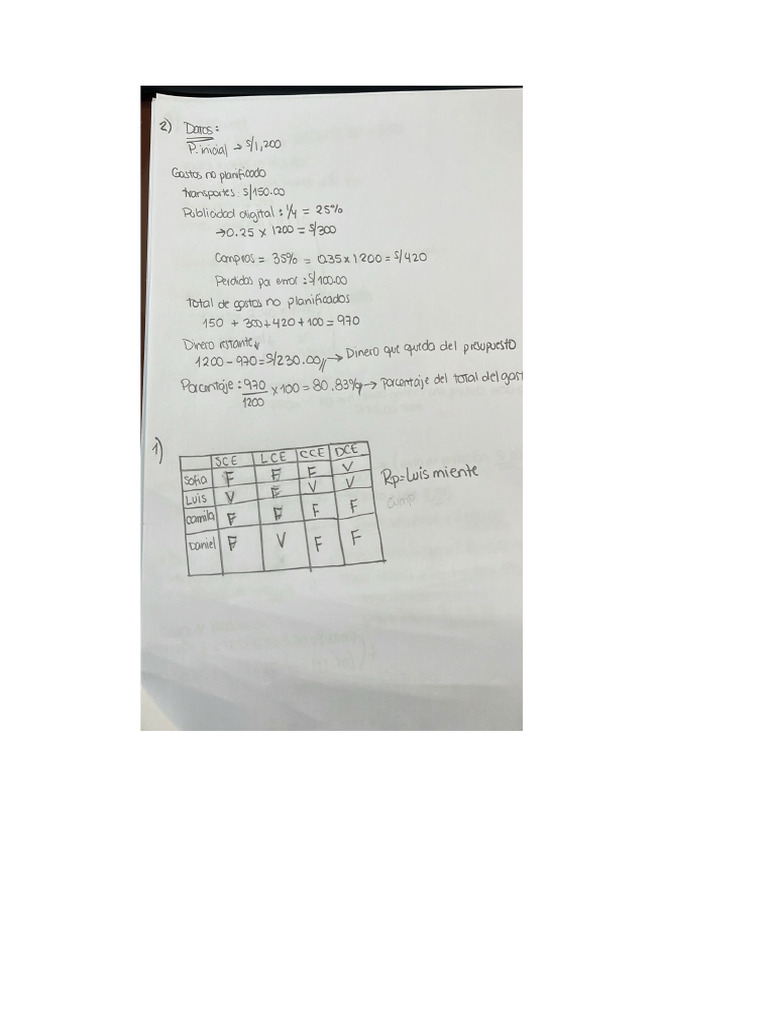 2) Datos:
P. inicial → S/1,200
Gastos no planificado
transportes: S/150.00
Publicidad digital: 1/4 = 25%
→ 0.25 x 1200 = S/300
Compras = 35% = 0.35 x 1200 = S/420
Perdidas por error: S/100.00
Total de gastos no planificados
150 + 300 + 420 + 100 = 970
Dinero restante
1200 - 970 = S/230.00 → Dinero que queda del presupuesto
Porcentaje: 970/1200 x 100 = 80.83% → Porcentaje del total del gast
1)
SCE LCE CCE DCE
Sofia F F F V
Luis V F V V
Camila F F F F
Daniel F V F F
Rp = Luis miente